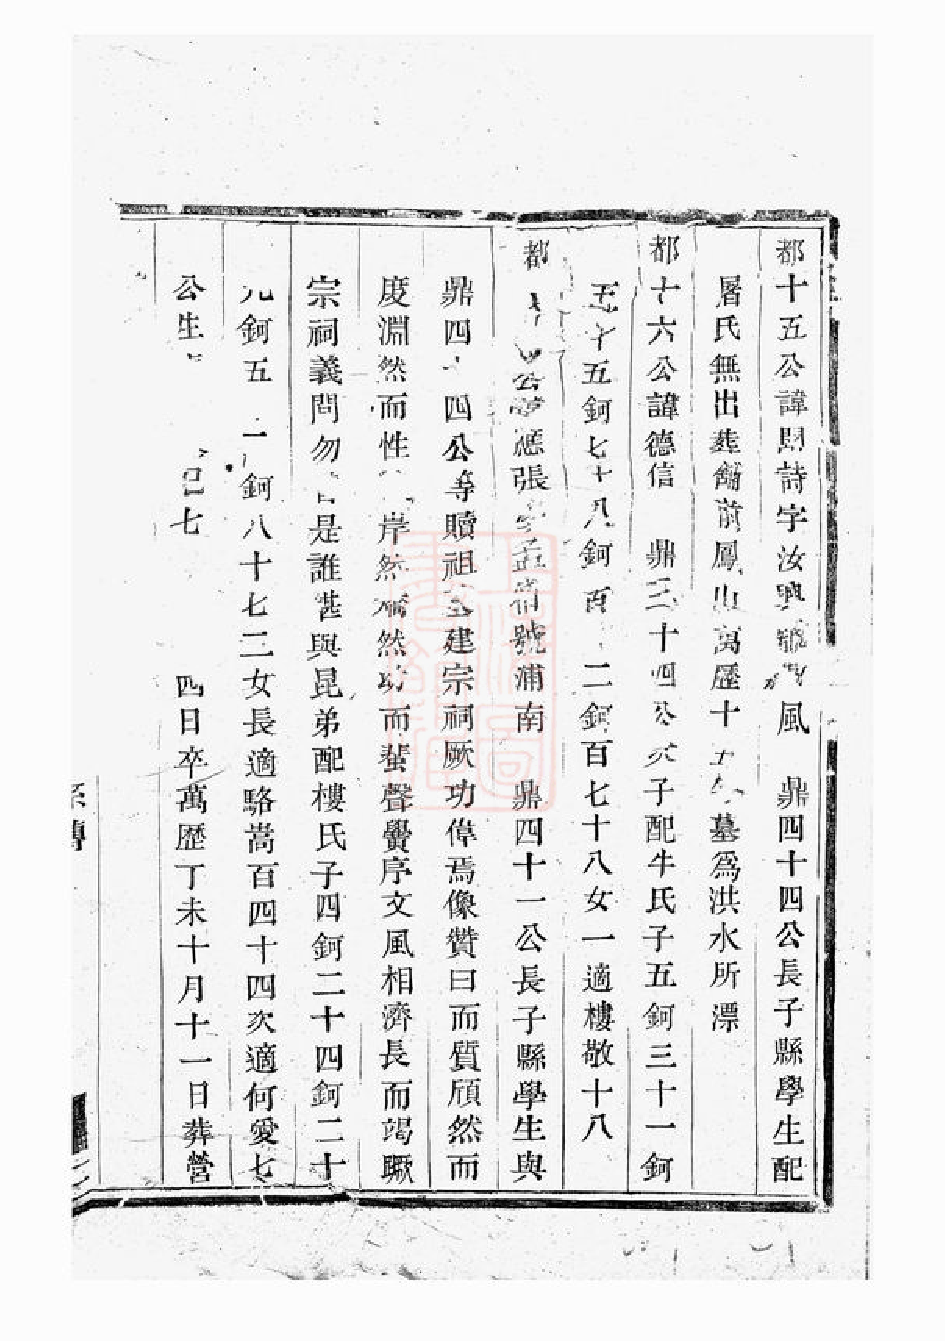 都十五公諱則詩字汝興號 風 鼎四十四公長子縣學生配
屠氏無出葬舖前鳳山萬歷十五年墓爲洪水所漂
都十六公諱德信 鼎三十四公次子配牛氏子五鈳三十一鈳
五十五鈳七十八鈳百 二鈳百七十八女一適樓敬十八
都 公 應張字孟 號浦南 鼎四十一公長子縣學生與
鼎四十四公等贖祖 建宗祠厥功偉焉像贊曰而質頎然而
度淵然而性 岸然 然功而蜚聲黌序文風相濟長而竭蹶
宗祠義問勿 是誰 與昆弟配樓氏子四鈳二十四鈳二十
九鈳五 鈳八十七二女長適駱嵩百四十四次適何愛七
公生 七 四日卒萬歷丁未十月十一日葬營
系傳